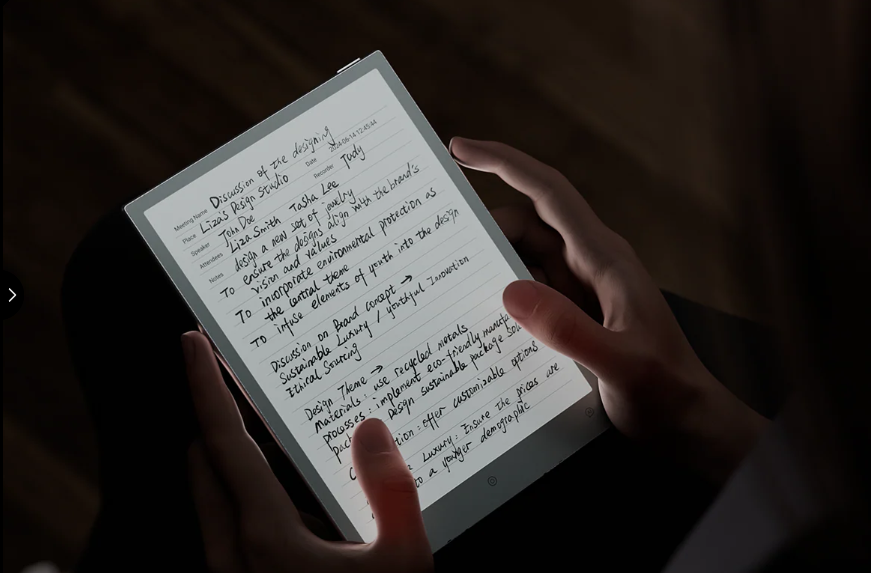 Meeting Name Discussion of the designing
Place Liza's Design Studio Date 2024-06-14 12:45:44
Speaker John Doe Recorder Judy
Attendees Liza Smith Tasha Lee
Notes design a new set of jewelry
To ensure the designs align with the brand's
vision and values
To incorporate environmental protection as
the central theme
To infuse elements of youth into the design
Discussion on Brand concept →
Sustainable Luxury / youthful Innovation
Ethical Sourcing
Design Theme →
materials : use recycled metals
processes : implement eco-friendly
Design sustainable package
offer customizable options
Luxury : Insure the prices are
to a younger demographic